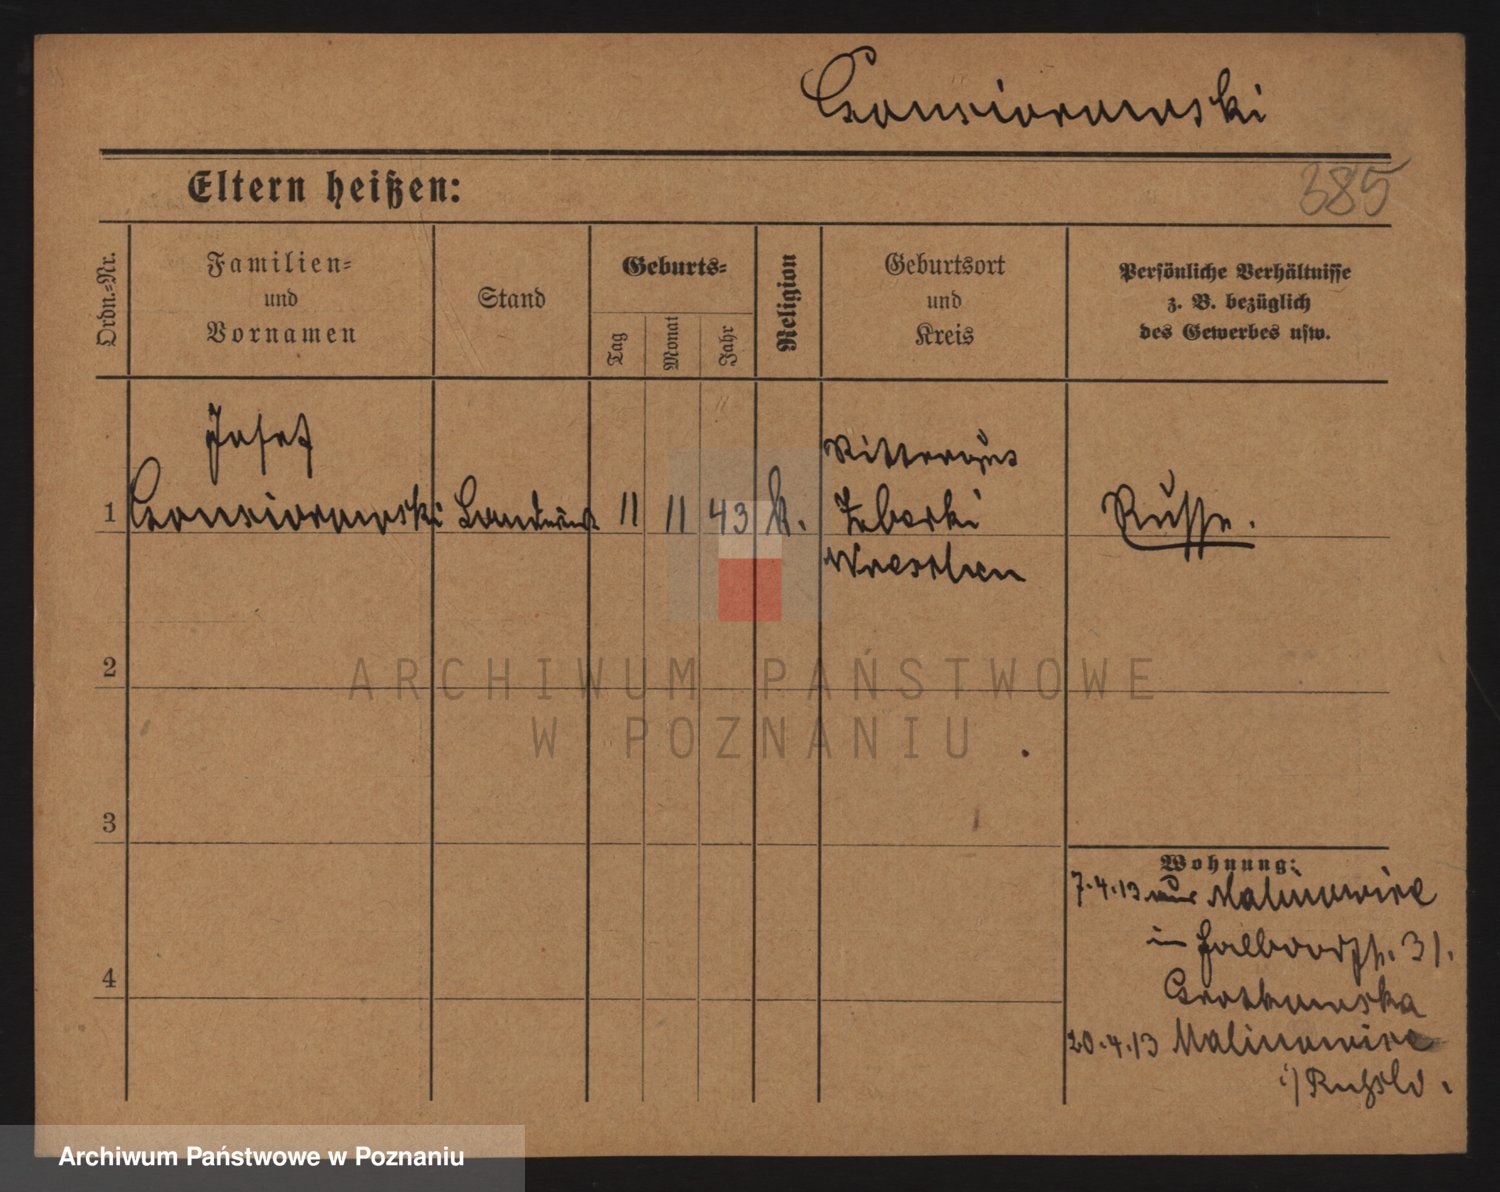 Gonsiorowski
Eltern heißen:
385
Ordn.-Nr.
Familien-
und
Vornamen
Stand
Geburts-
Tag
Monat
Jahr
Religion
Geburtsort
und
Kreis
Persönliche Verhältnisse
z. B. bezüglich
des Gewerbes usw.
Josef
1 Gonsiorowski Landwirt 11 11 43 k.
Rittergut
Wreschen
Russe.
2
3
4
Wohnung:
7.4.13 aus Malinowice
in 31.
20.4.13 Malinowice
i/ Rußld.
ARCHIWUM PAŃSTWOWE
W POZNANIU
Archiwum Państwowe w Poznaniu